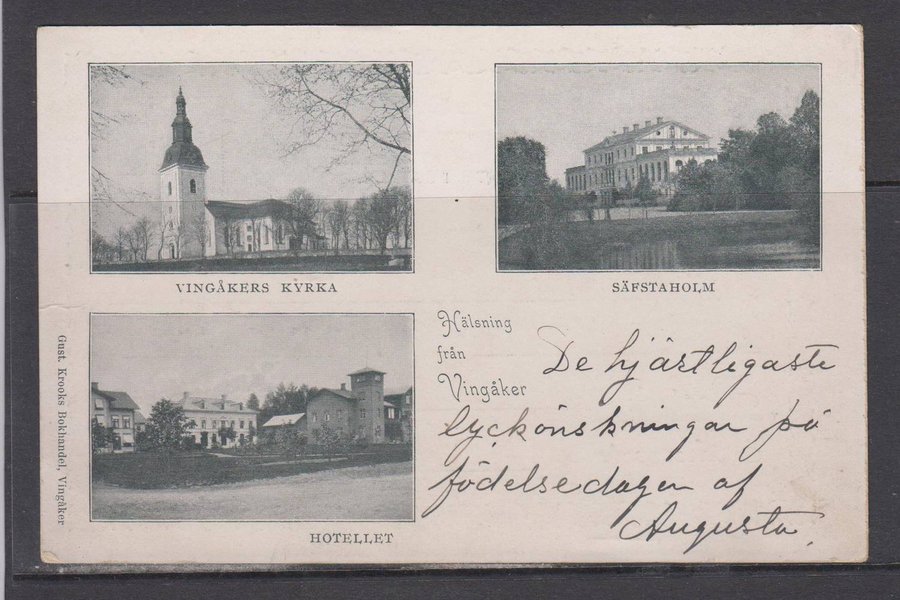 VINGÅKERS KYRKA
SÄFSTAHOLM
HOTELLET
Gust. Krooks Bokhandel, Vingåker
Hälsning
från
Vingåker
De hjärtligaste
lyckönskningar på
födelsedagen af
Augusta.